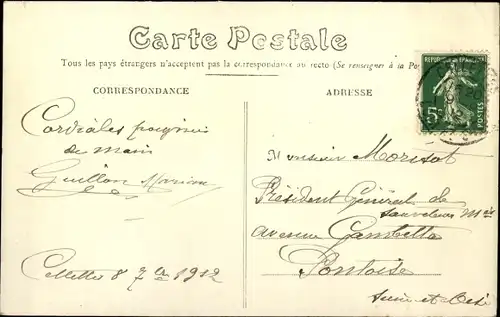 Carte Postale
Tous les pays étrangers n'acceptent pas la correspondance au recto (Se renseigner à la Po
CORRESPONDANCE
ADRESSE
REPUBLIQUE FRANÇAISE
5c
POSTES
Cordiales poignées
de main
Guillon
Monsieur Morisot
Président Général de
sauveteurs
avenue Gambetta
Pontoise
Seine-et-Oise
8 7bre 1912